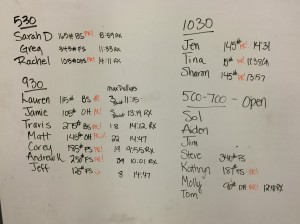 530
Sarah D 165# BS PR! 8:59 RX
Greg 345# FS 11:33 RX
Rachel 105# OH PR! 14:11 RX
930 max Dollars
Lauren 115# BS PR! 3 11:75
Jamie 105# OH PR! 5 13:19 RX
Travis 275# BS PR! 18 14:12 RX
Matt 145# OH 22 14:47
Corey 185# FS 19 9:55 RX
Andrew K 235# FS PR! 29 10:01 RX
Jeff 125# 8 14:47
1030
Jen 145# PR! 14:31
Tina PR!
Sharon 145# PR! 13:57
500-700 - Open
Sol
Aiden
Jim
Steve 340# FS
Kathryn 137# FS PR!
Molly 95# OH PR! 12:40 RX
Tom